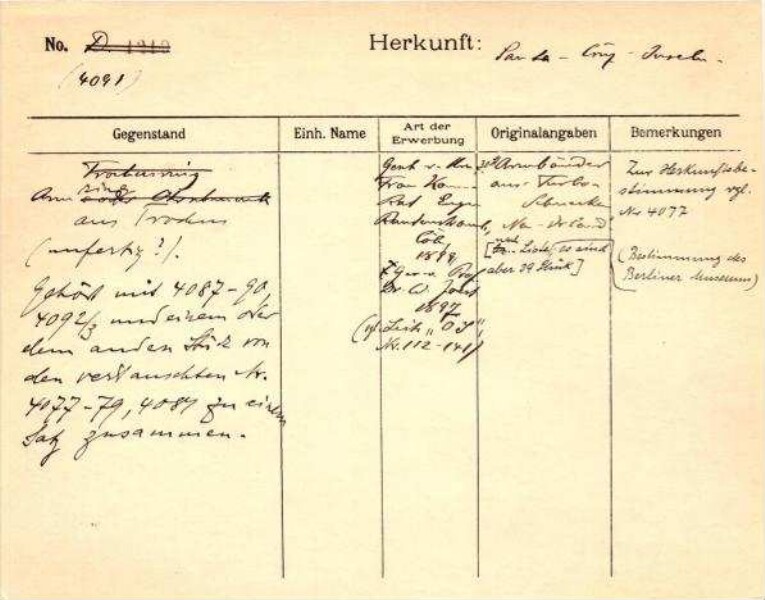 No. D. 1210
Herkunft: Santa - Cruz - Inseln.
(4091)
Gegenstand
Einh. Name
Art der
Erwerbung
Originalangaben
Bemerkungen
Arm ring
aus Trochus
(unfertig?).
Gehört mit 4087-90,
4092/3 und einem oder
dem anderen Stück von
den vertauschten Nr.
4077-79, 4084 zu einem
Satz zusammen.
Gesch. v.
Frau
Rat Eugen
Rautenstrauch,
Cöln
1899
Prof.
Dr. W. Joest
1897
Liste "
Nr. 112-141)
Armbänder
aus Turbo-
Schnecke
[nach Liste, es sind
aber 39 Stück]
Zur Herkunftsbe-
stimmung vgl.
Nr 4077
(Bestimmung des
Berliner Museums)